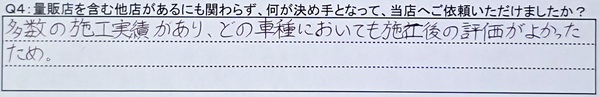 Q4：量販店を含む他店があるにも関わらず、何が決め手となって、当店へご依頼いただけましたか？
多数の施工実績があり、どの車種においても施工後の評価がよかった
ため。